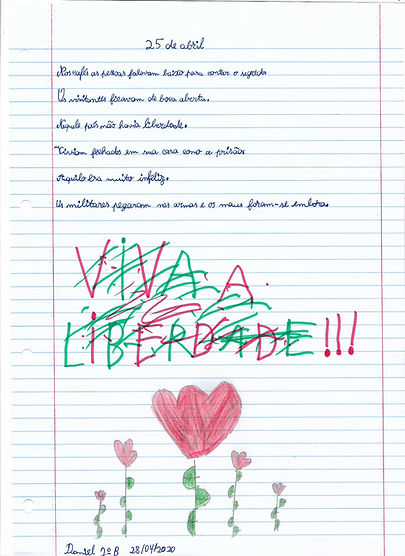 25 de abril
Nos cafés as pessoas falavam baixo para contar o segredo.
Os visitantes ficavam de boca aberta.
Naquele país não havia liberdade.
Viviam fechados em sua casa como a prisão.
Aquilo era muito infeliz.
Os militares pegaram nas armas e os maus foram-se embora.
VIVA A
LIBERDADE!!!
Daniel 2º B 28/04/2020